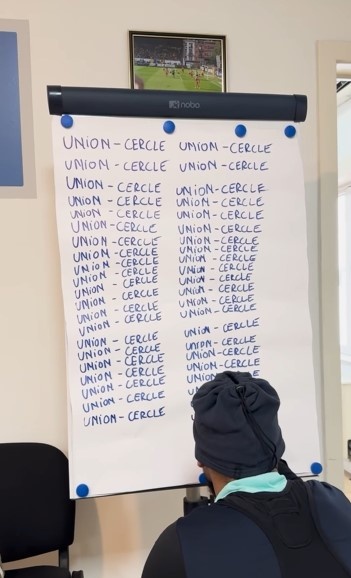 nobo
UNION-CERCLE
UNION-CERCLE
UNION-CERCLE
UNION-CERCLE
UNION-CERCLE
UNION-CERCLE
UNION-CERCLE
UNION-CERCLE
UNION-CERCLE
UNION-CERCLE
UNION-CERCLE
UNION-CERCLE
UNION-CERCLE
UNION-CERCLE
UNION-CERCLE
UNION-CERCLE
UNION-CERCLE
UNION-CERCLE
UNION-CERCLE
UNION-CERCLE
UNION-CERCLE
UNION-CERCLE
UNION-CERCLE
UNION-CERCLE
UNION-CERCLE
UNION-CERCLE
UNION-CERCLE
UNION-CERCLE
UNION-CERCLE
UNION-CERCLE
UNION-CERCLE
UNION-CERCLE
UNION-CERCLE
UNION-CERCLE
UNION-CERCLE
UNION-CERCLE
UNION-CERCLE
UNION-CERCLE
UNION-CERCLE